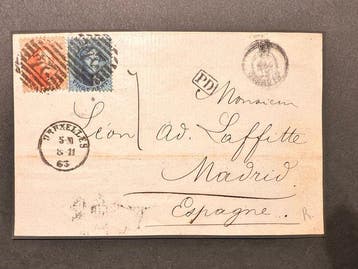 PD
Monsieur
Léon Ad. Laffitte
Madrid.
Espagne.
BRUXELLES
5-M
8-11
63